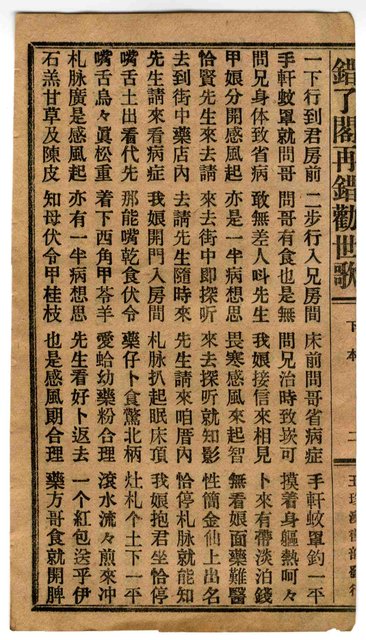 錯了閣再錯勸世歌 下本 二 玉珍漢書部發行
一下行到君房前 二步行入兄房間 床前問哥省病症 手軒蚊罩釣一平
手軒蚊罩就問哥 問哥有食也是無 問兄治時致崁可 摸着身軀熱呵々
問兄身体致省病 敢無差人呌先生 我娘接信來相見 卜來有帶淡泊錢
甲娘分開感風起 亦是一半病想思 畏寒感風來起智 無看娘面藥難醫
恰賢先生來去請 來去街中即探听 來去探听就知影 性簡金仙上出名
去到街中藥店內 去請先生隨時來 先生請來咱厝內 恰停札脉就能知
先生請來看病症 我娘開門入房間 札脉扒起眠床頂 我娘抱君坐恰停
嘴舌土出看代先 那能嘴乾食伏令 藥仔卜食驚北柄 灶札个土下一平
嘴舌烏々眞松重 着下西角甲苓羊 愛蛤幼藥粉合理 滾水流々煎來冲
札脉廣是感風起 亦有一半病想思 先生看好卜返去 一个紅包送乎伊
石羔甘草及陳皮 知母伏令甲桂枝 也是感風朗合理 藥方哥食就開脾